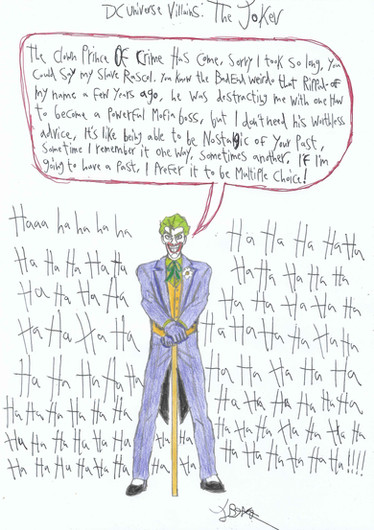 DC Universe Villains: The Joker
The Clown Prince Of Crime Has Come, Sorry I took So long, You
Could Say my Slave Rascal. You know the BadEnd weirdo that Ripped-of
my name a Few Years ago, he was destracting me with one How
to become a Powerful Mafia boss, but I don't need his Worthless
advice, It's like being able to be Nostalgic of Your Past,
Sometime I remember it one way, Sometimes another. If I'm
going to have a Past, I Prefer it to be Multiple Choice!
Haaa ha ha ha ha
Ha Ha Ha Ha Ha
Ha Ha Ha Ha
Ha Ha Ha Ha
Ha Ha Ha Ha
Ha Ha Ha Ha Ha Ha
Ha Ha Ha Ha Ha Ha Ha Ha
Ha Ha Ha Ha Ha Ha Ha Ha
Ha Ha Ha Ha Ha
Ha Ha Ha Ha Ha
Ha Ha Ha Ha Ha
Ha Ha Ha Ha Ha Ha
Ha Ha Ha Ha Ha
Ha Ha Ha Ha Ha
Ha Ha Ha Ha Ha Ha
Ha Ha Ha Ha Ha Ha!!!!